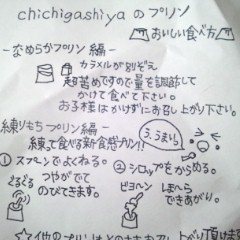 chichigashiyaのプリン
おいしい食べ方
-なめらかプリン編-
カラメルが別ぞえ
超苦めですので量を調節して
かけて食べて下さい。
お子様はかけずにお召し上がり下さい。
練りもちプリン編-
練って食べる新食感プリン!!
う、うまい!
①スプーンでよくねる。
ぐるぐる
つやがでて
のびてきます。
②シロップをからめる。
ビヨーン
しまへら
できあがり。
☆その他のプリンはそのままお召し上がり頂けます